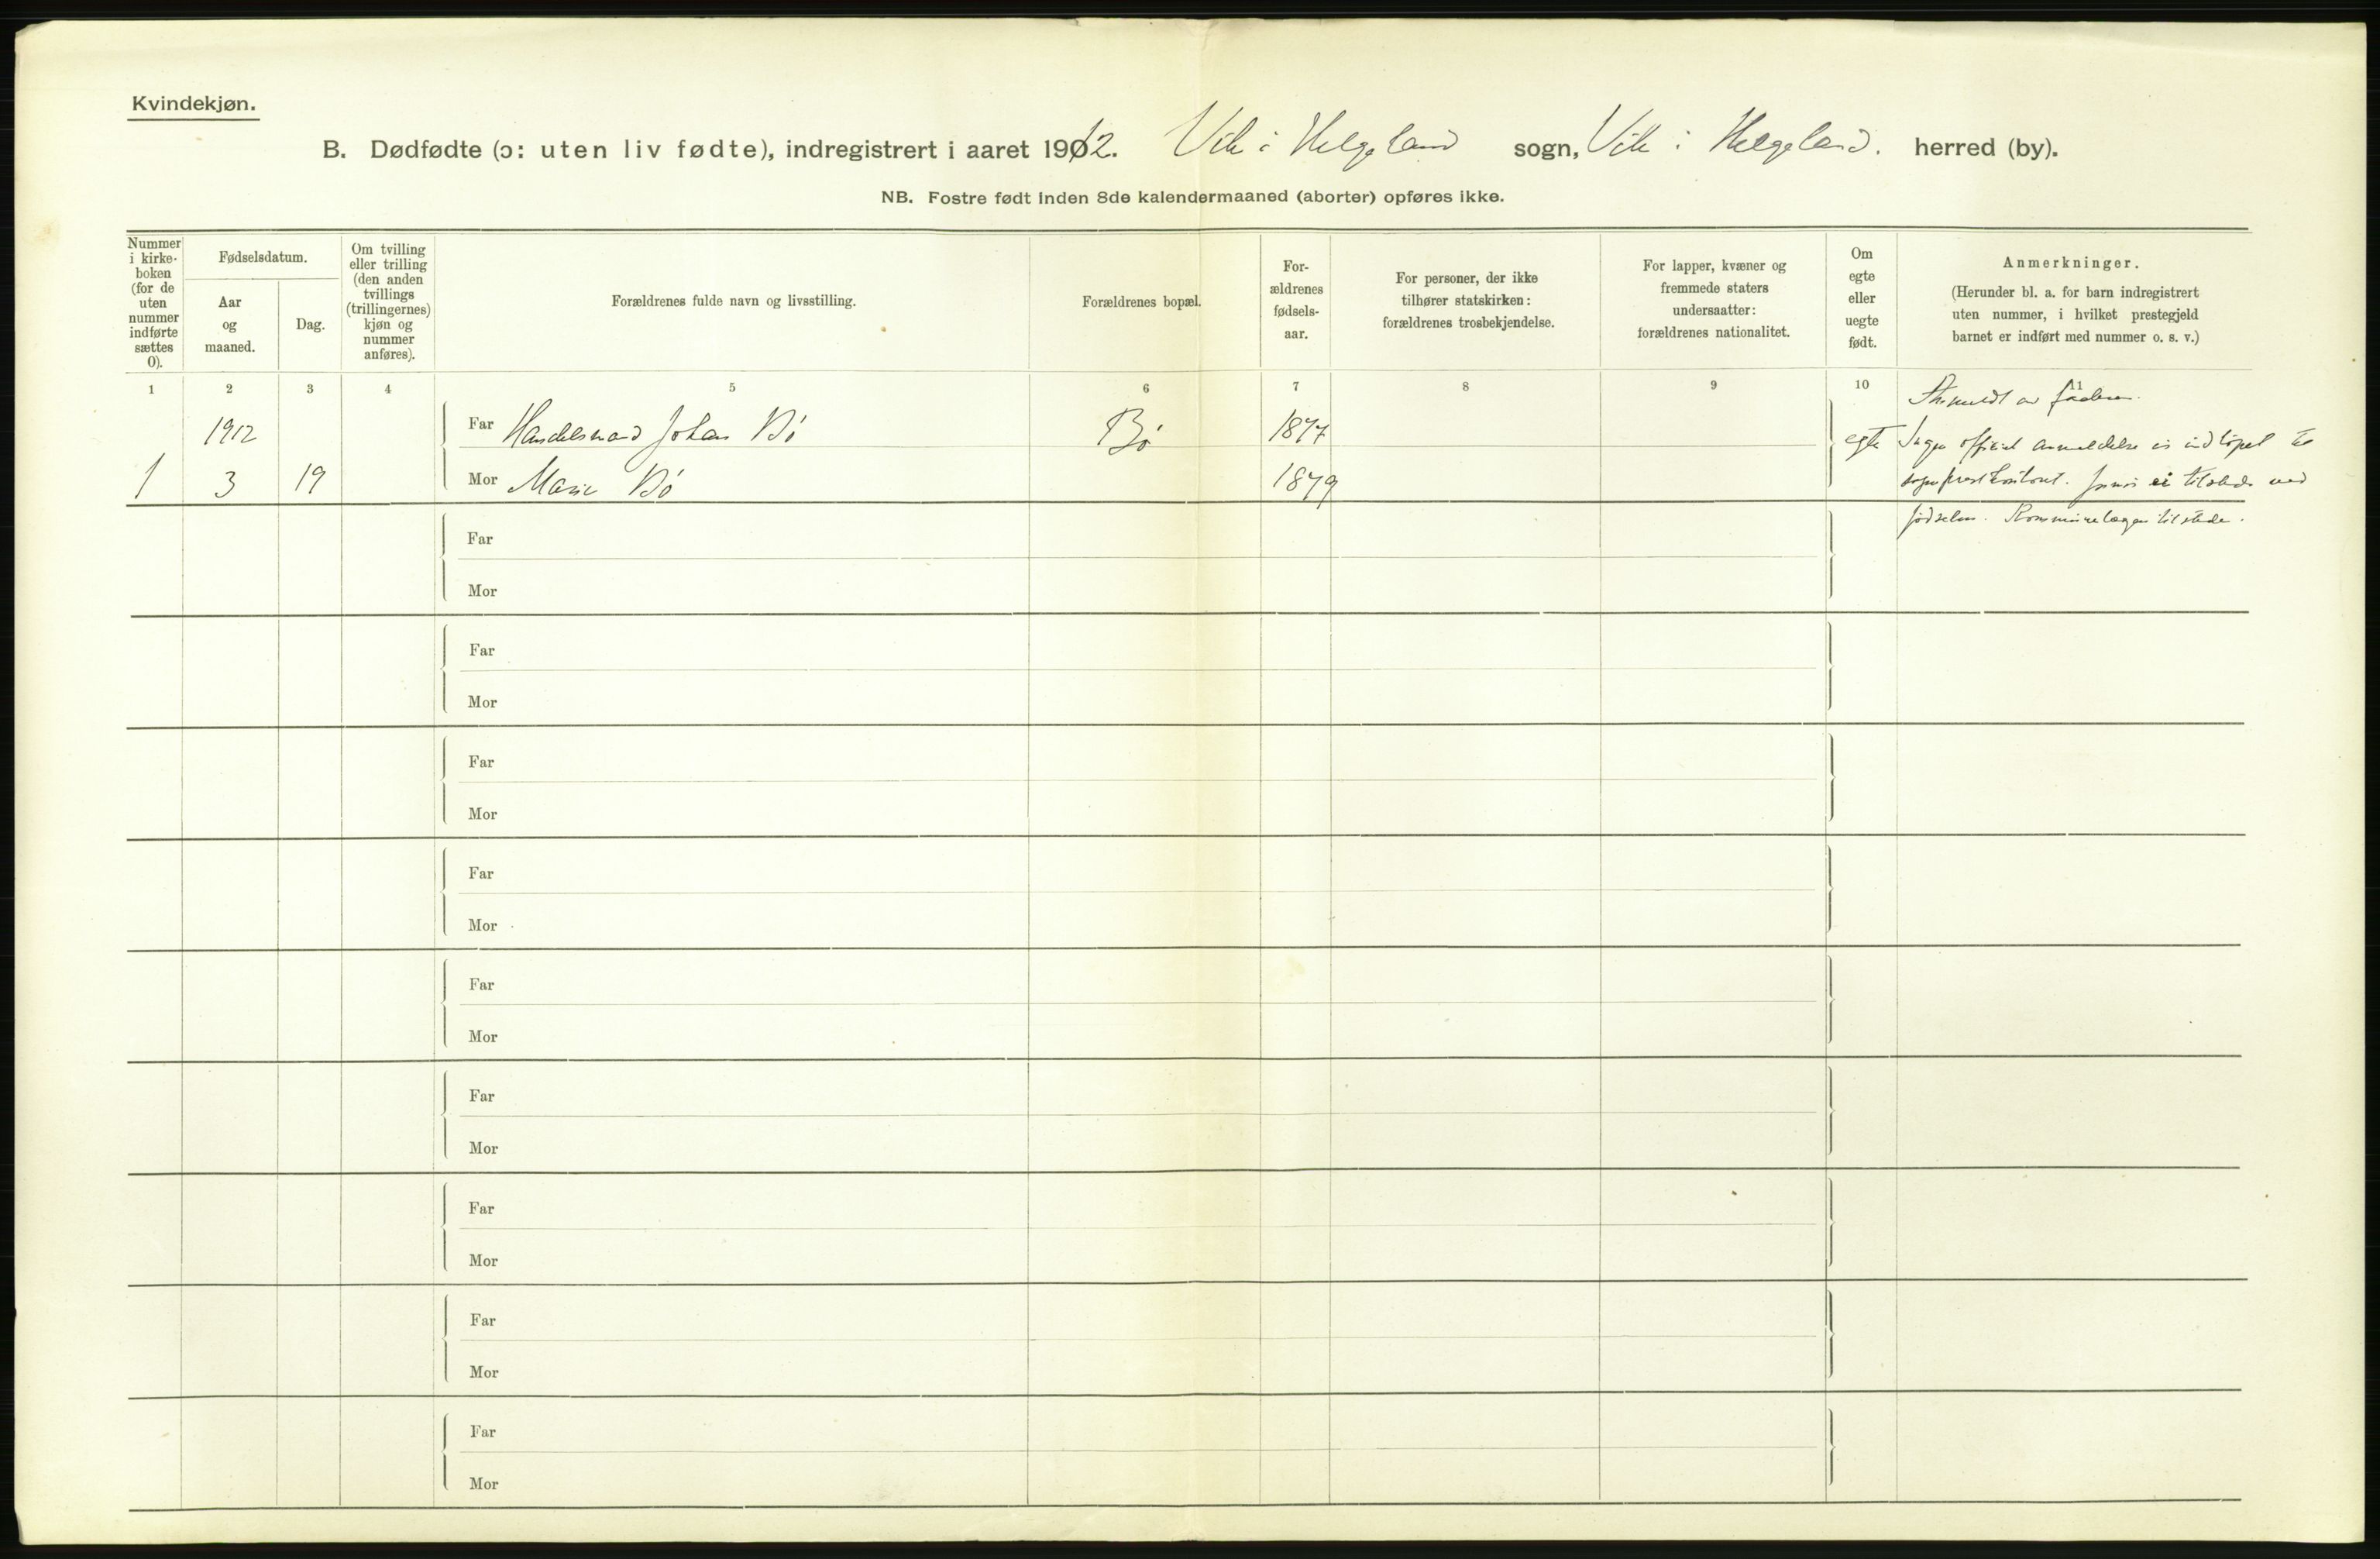 Kvindekjøn.
B. Dødfødte (ɔ: uten liv fødte), indregistrert i aaret 1912. Vik i Helgeland sogn, Vik i Helgeland. herred (by).
NB. Fostre født inden 8de kalendermaaned (aborter) opføres ikke.
Nummer i kirke-boken (for de uten nummer indførte sættes 0).
Fødselsdatum.
Aar og maaned.
Dag.
Om tvilling eller trilling (den anden tvillings (trillingernes) kjøn og nummer anføres).
Forældrenes fulde navn og livsstilling.
Forældrenes bopæl.
For-ældrenes fødsels-aar.
For personer, der ikke tilhører statskirken: forældrenes trosbekjendelse.
For lapper, kvæner og fremmede staters undersaatter: forældrenes nationalitet.
Om egte eller uegte født.
Anmerkninger.
(Herunder bl. a. for barn indregistrert uten nummer, i hvilket prestegjeld barnet er indført med nummer o. s. v.)
1 2 3 4 5 6 7 8 9 10 11
av faderen.
1912 Far Handelsmand Johan Bö Bö 1877 egte Ingen officiel anmeldelse er indløpet til
1 3 19 Mor Marie Bö 1879 sogneprestkontoret. Jormor ei tilstede ved
fødselen. Kommunelægen tilstede.
Far
Mor
Far
Mor
Far
Mor
Far
Mor
Far
Mor
Far
Mor
Far
Mor
Far
Mor
Far
Mor